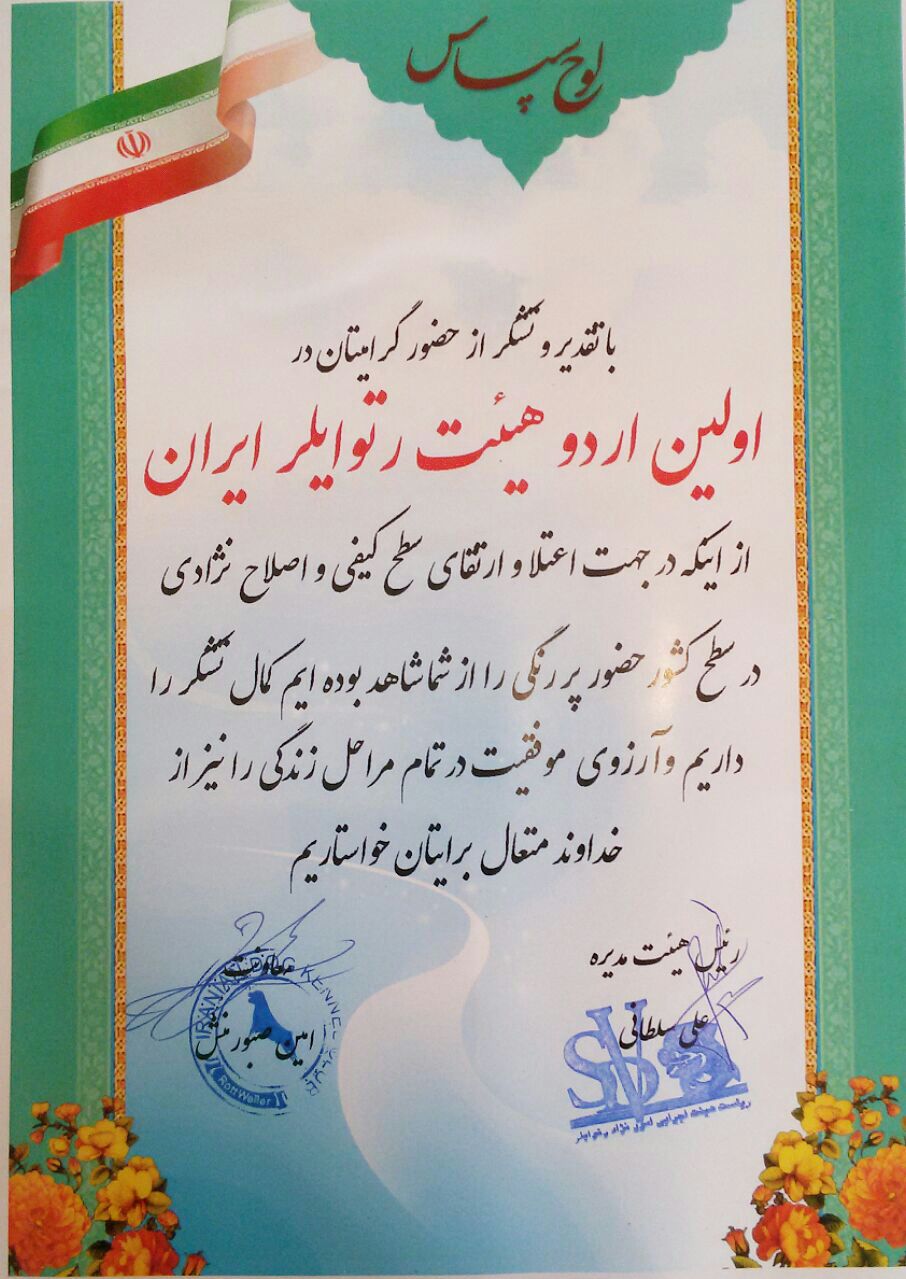 لوح سپاس
با تقدیر و تشکر از حضور گرامیتان در
اولین اردو هیئت رتوایلر ایران
از اینکه در جهت اعتلا و ارتقای سطح کیفی و اصلاح نژادی
در سطح کشور حضور پر رنگی را از شما شاهد بوده ایم کمال تشکر را
داریم و آرزوی موفقیت در تمام مراحل زندگی را نیز از
خداوند متعال برایتان خواستاریم
رئیس هیئت مدیره
علی سلطانی
SV
ریاست هیئت اجرایی امور نژاد رتوایلر
معاونت
امین صبور منش
IRANIAN KENNEL
RottWeiler